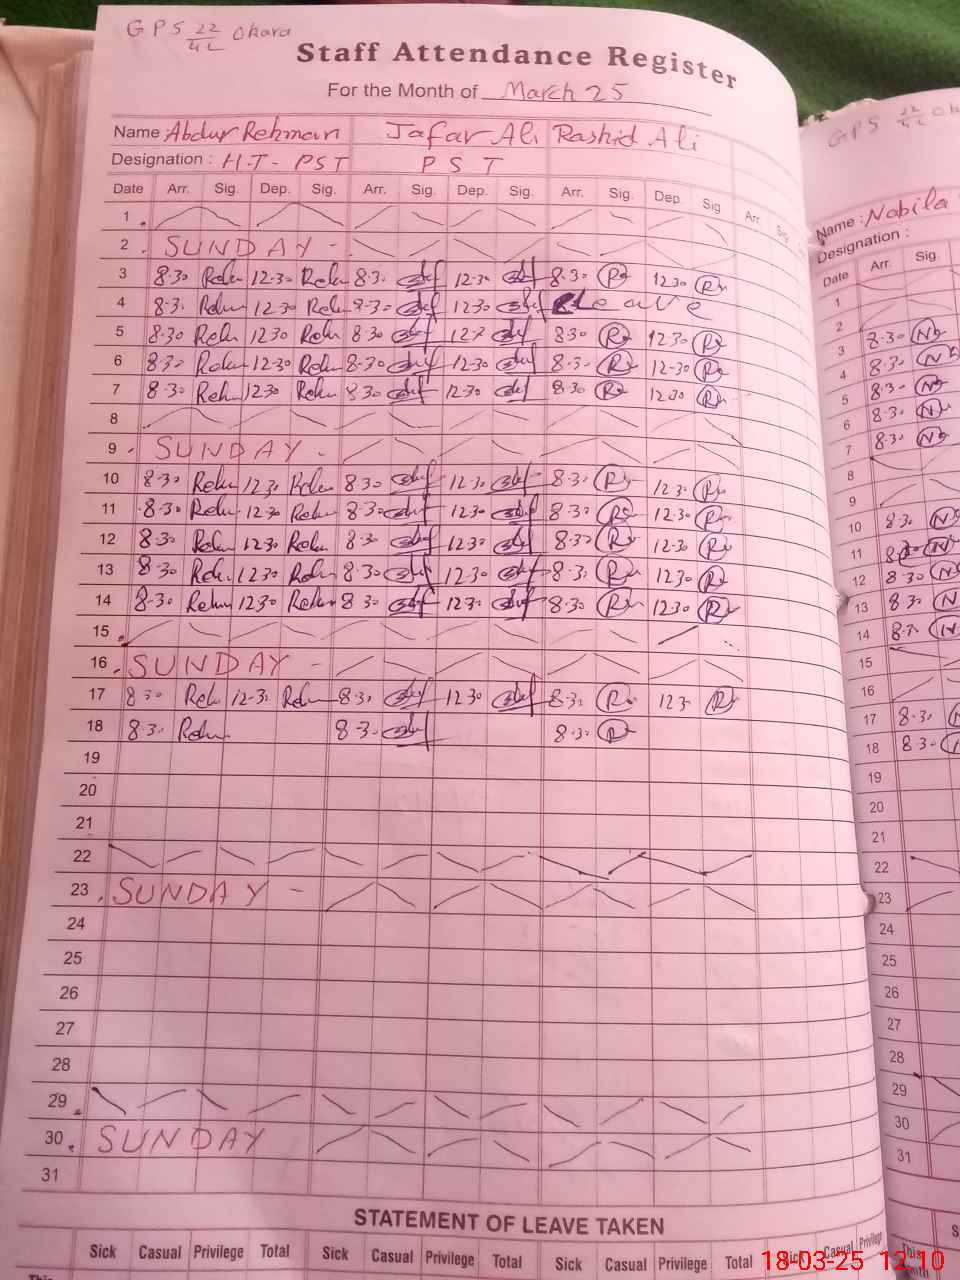 GPS 22/4L Okara
Staff Attendance Register
For the Month of March 25
Name : Abdur Rehman Jafar Ali Rashid Ali
Designation : H.T - PST P S T
Date Arr. Sig. Dep. Sig. Arr. Sig. Dep. Sig. Arr. Sig. Dep. Sig Arr Sig
1
2 SUNDAY -
3 8.30 Rehm 12.30 Rehm 8.30 12.30 8.30 12.30
4 8.30 Rehm 12.30 Rehm 8.30 12.30 Leave
5 8.30 Rehm 12.30 Rehm 8.30 8.30 12.30
6 8.30 Rehm 12.30 Rehm 8.30 12.30 8.30 12.30
7 8.30 Rehm 12.30 Rehm 8.30 12.30 8.30 12.30
8
9 SUNDAY -
10 8.30 Rehm 12.30 Rehm 8.30 12.30 8.30 12.30
11 8.30 Rehm 12.30 Rehm 8.30 12.30 8.30 12.30
12 8.30 Rehm 12.30 Rehm 8.30 12.30 8.30 12.30
13 8.30 Rehm 12.30 Rehm 8.30 12.30 8.30 12.30
14 8.30 Rehm 12.30 Rehm 8.30 12.30 8.30 12.30
15
16 SUNDAY -
17 8.30 Rehm 12.30 Rehm 8.30 12.30 8.30 12.30
18 8.30 Rehm 8.30 8.30
19
20
21
22
23 SUNDAY -
24
25
26
27
28
29
30 SUNDAY
31
STATEMENT OF LEAVE TAKEN
Sick Casual Privilege Total Sick Casual Privilege Total Sick Casual Privilege Total Sick Casual Privilege
GPS 22/4L
Name : Nabila
Designation :
Date Arr. Sig.
1
2
3 8.30
4 8.30
5 8.30
6 8.30
7 8.30
8
9
10 8.30
11
12 8.30
13 8.30
14 8.30
15
16
17 8.30
18 8.30
19
20
21
22
23
24
25
26
27
28
29
30
31
This
18-03-25 12:10